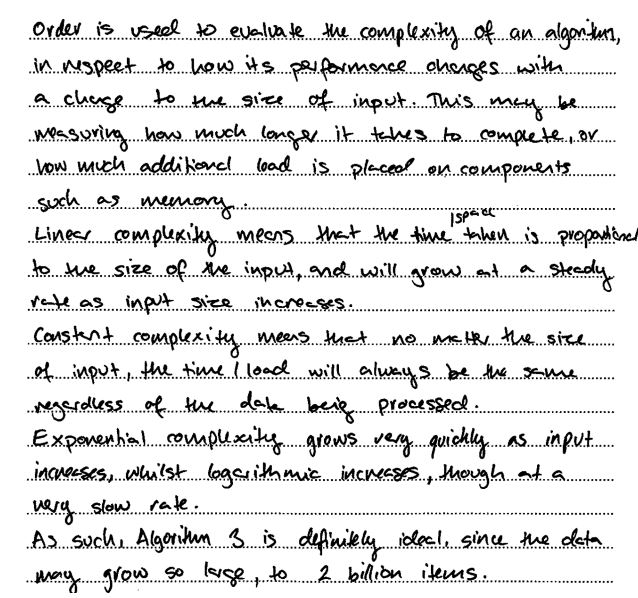 Order is used to evaluate the complexity of an algorithm,
in respect to how its performance changes with
a change to the size of input. This may be
measuring how much longer it takes to complete, or
how much additional load is placed on components
such as memory.
/space
Linear complexity means that the time taken is proportional
to the size of the input, and will grow at a steady
rate as input size increases.
Constant complexity means that no matter the size
of input, the time / load will always be the same
regardless of the data being processed.
Exponential complexity grows very quickly as input
increases, whilst logarithmic increases, though at a
very slow rate.
As such, Algorithm 3 is definitely ideal, since the data
may grow so large, to 2 billion items.